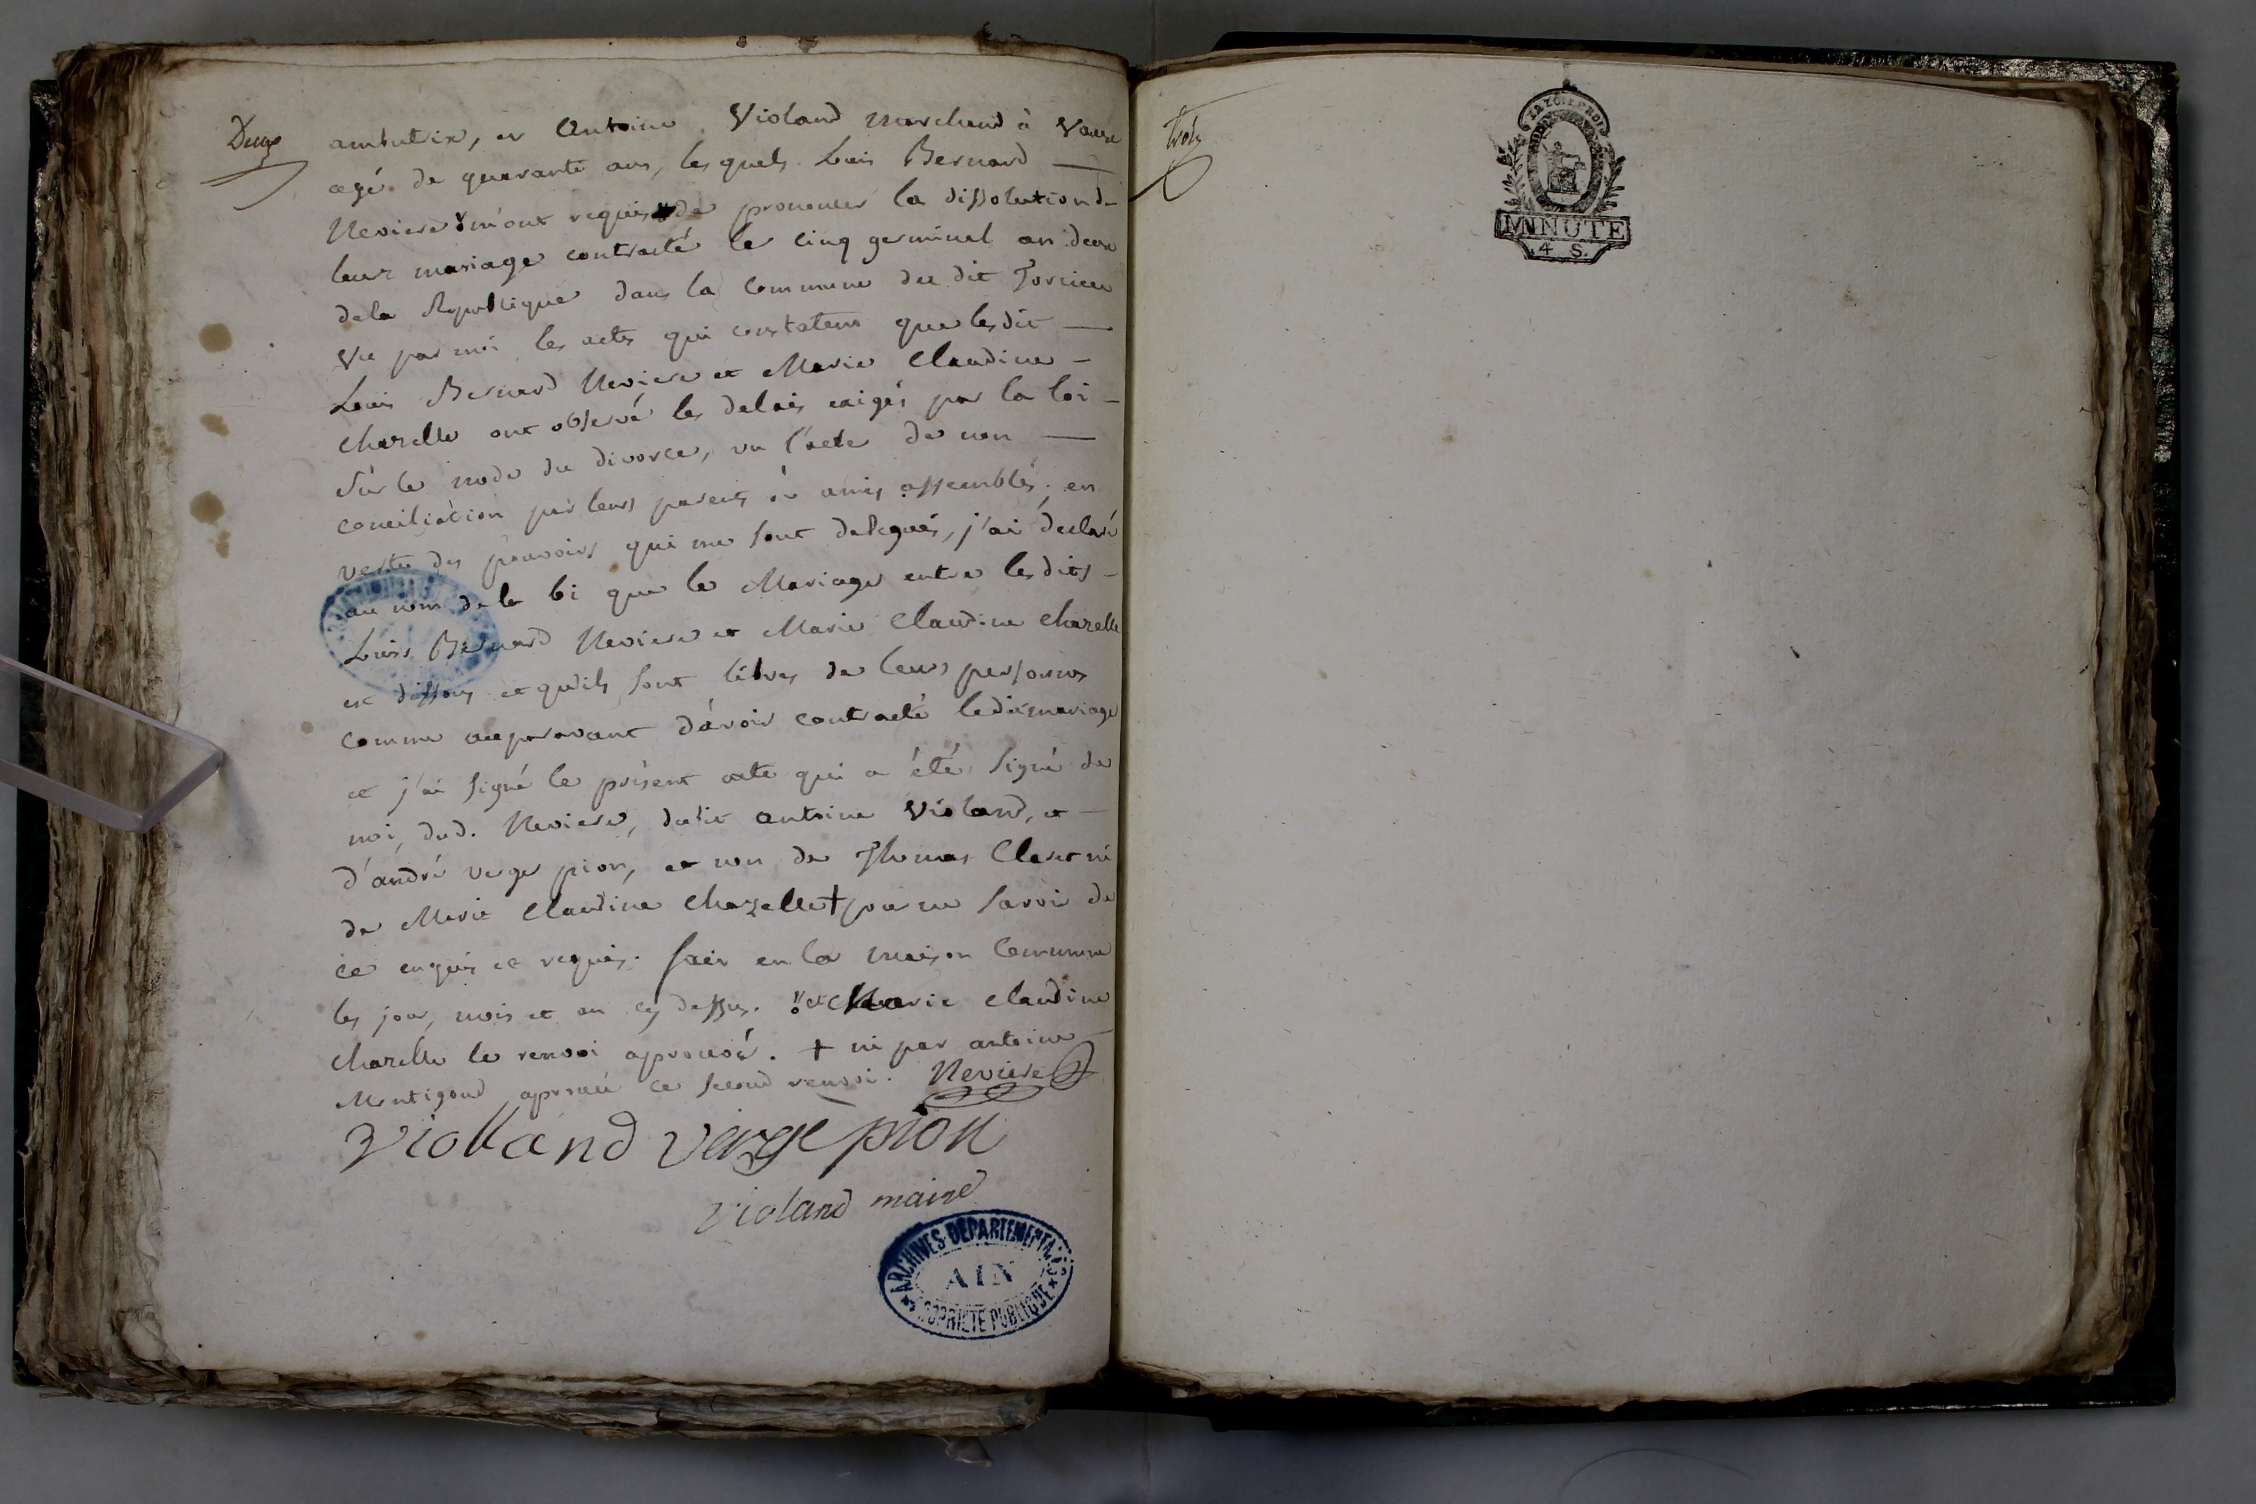 Deux
ambutrix, et Antoine Violand marchand à Vaux
agé de quarante ans, lesquels Louis Bernard
Neviere m'ont requis de prononcer la dissolution de
leur mariage contracté le cinq germinal an deux
de la Republique dans la commune du dit Torcieu
Vu par moi les actes qui constatent que lesdit
Louis Bernard Neviere et Marie Claudine
Chazelle ont observé les delais exigés par la loi
sur le mode du divorce, vu l'acte de non
conciliation par leurs parents et amis assemblés, en
vertu des pouvoirs qui me sont delegués, j'ai déclaré
au nom de la loi que le Mariage entre les dits
Louis Bernard Neviere et Marie Claudine Chazelle
est dissous et qu'ils sont libres de leurs personnes
comme auparavant d'avoir contracté ledit mariage
et j'ai signé le présent acte qui a été signé de
moi, dud. Neviere, dudit antoine Violand, et
d'andré verge pion, et non de Thomas Claret ni
de Marie Claudine Chazelle + pour ne savoir de
ce enquis et requis. fait en la maison Commune
les jour, mois et an cy dessus. et Marie Claudine
Chazelle le renvoi aprouvé. + ni par antoine
Montigoud aprouvé ce second renvoi. Neviere
Violland verge pion
violand maire
ARCHIVES DEPARTEMENTALES
AIN
PROPRIETE PUBLIQUE
trois
LA LOI ET LE ROI
MINUTE
4 S.